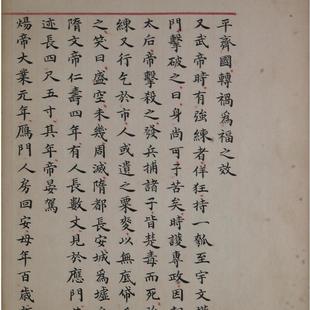 平齊國轉禍為福之效
又武帝時有強練者佯狂持一瓠至宇文
門擊破之曰身尚可子苦矣時護專政因
太后帝擊殺之發兵捕諸子皆楚毒而死
練又行乞於市人或遺之粟麥以無底
之笑曰盛空未幾周滅隋都長安城為墟
隋文帝仁壽四年有人長數丈見於應門
迹長四尺五寸其年帝晏駕
煬帝大業元年鴈門人房回安母年百歲